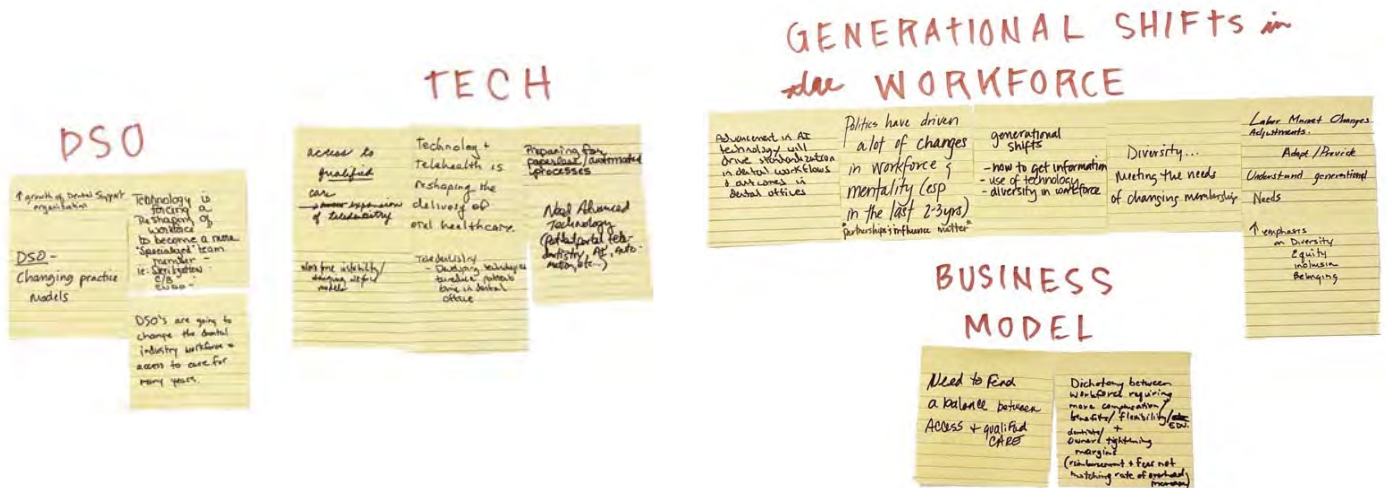 DSO
↑ growth of Dental Support
organization
DSO -
Changing practice
models
Technology is
forcing a
Reshaping of
workforce
to become a more
"Specialized" team
member -
ie: Sterilization
DSO's are going to
change the dental
industry workforce +
access to care for
many years.
TECH
access to
qualified
care
expansion
of teledentistry
models
Technology +
Telehealth is
reshaping the
delivery of
oral healthcare.
Teledentistry
- Developing technologies
to reduce patients
time in dental
office
Preparing for
paperless/automated
processes
Need Advanced
Technology
dentistry, AI, Auto-
mation, etc...)
GENERATIONAL SHIFTS in
the WORKFORCE
Advancement in AI
technology will
drive standardization
in dental workflows
& outcomes in
dental offices
Politics have driven
a lot of changes
in workforce ;
mentality (esp
in the last 2-3 yrs)
partnerships ; influence matter"
generational
shifts
- how to get information
- use of technology
- diversity in workforce
Diversity...
Meeting the needs
of changing membership
Labor Market Changes
Adjustments.
Adapt / Provide
Understand generational
Needs
↑ emphasis
on Diversity
Equity
inclusion
Belonging
BUSINESS
MODEL
Need to Find
a balance between
Access + qualified
CARE
Dichotomy between
workforce requiring
more compensation/
benefits/ flexibility/
EDU.
dentists/ +
Owners tightening
margins
(reimbursement + fees not
matching rate of overhead